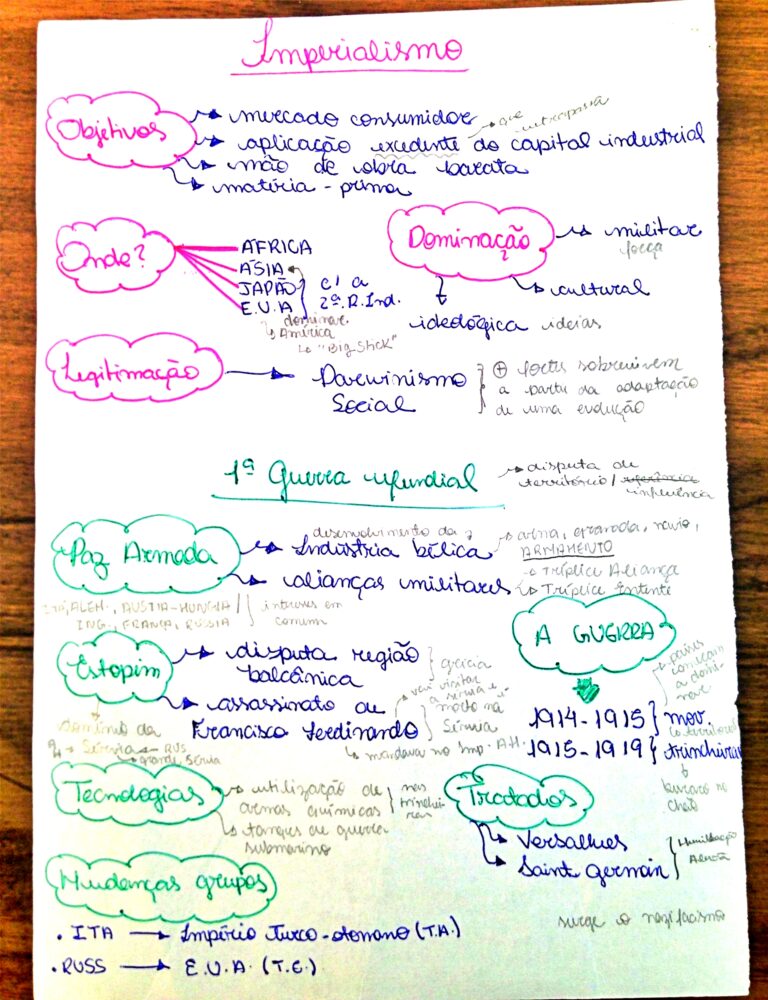 Imperialismo
Objetivos
mercado consumidor
aplicação excedente do capital industrial
que ultrapassa
mão de obra barata
matéria-prima
Onde?
ÁFRICA
ÁSIA
JAPÃO
E.U.A
c/ a
2ª.R.Ind.
dominar
América
"Big-Stick"
Dominação
militar
força
cultural
ideológica ideias
Legitimação
Darwinismo
Social
+ fortes sobrevivem
a partir da adaptação
de uma evolução
1ª Guerra Mundial
disputa de
território/
influência
Paz Armada
desenvolvimento da
Indústria bélica
arma, granada, navio,
ARMAMENTO
alianças militares
Tríplice Aliança
Tríplice Entente
ITÁ, ALEM., AUSTIA-HUNGRIA
ING., FRANÇA, RUSSIA
interesses em
comum
Estopim
disputa região
balcânica
assassinato de
Francisco Ferdinando
vai visitar
a servia e é
morto na
Sérvia
mandava no Imp. A.H.
domínio da
Sérvia RUS
grande Sérvia
A GUERRA
países
começam
a domi-
nar
1914-1915 mov.
1915-1919 trincheiras
buraco no
chão
Tecnologias
utilização de
armas químicas
nas
trinchei-
ras
tanques de guerra
submarino
Tratados
Versalhes
Saint German
Humilhação
Alemã
surge o nazifacismo
Mudanças grupos
. ITA Império Turco-otomano (T.A.)
. RUSS E.U.A. (T.E.)